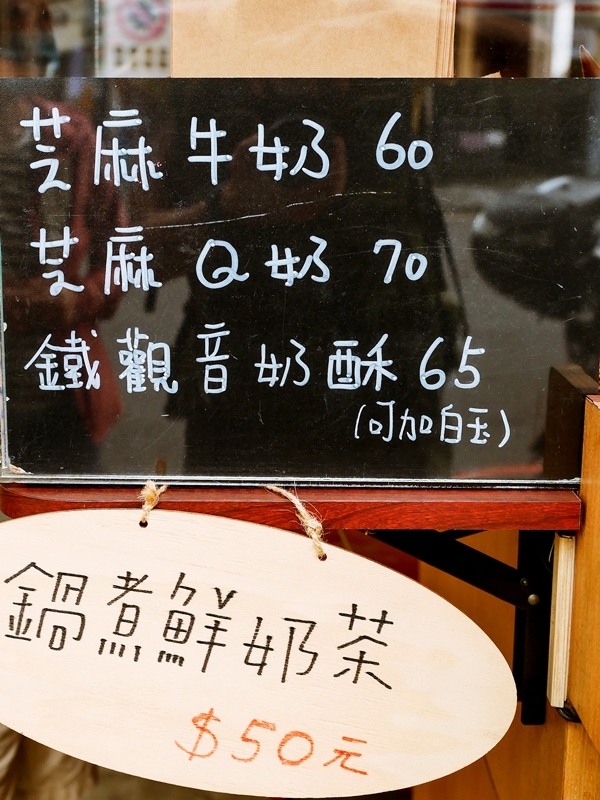 芝麻牛奶 60
芝麻Q奶 70
鐵觀音奶酥 65
(可加白玉)
鍋煮鮮奶茶
$50元